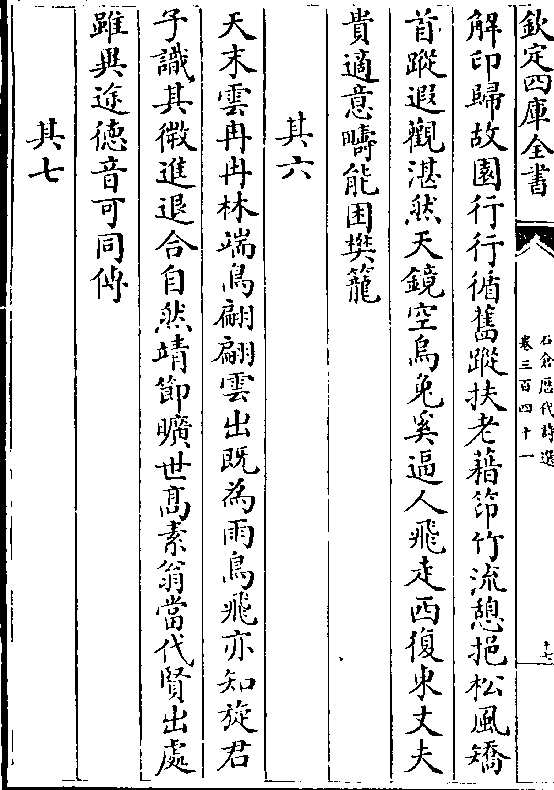 欽定四庫全書
石倉歷代詩選
卷三百四十一
十七
解印歸故園行行循舊蹤扶老藉笻竹流憩挹松風矯
首蹤遐觀湛然天鏡空烏兔奚逼人飛走西復東丈夫
貴適意疇能困樊籠
其六
天末雲冉冉林端鳥翩翩雲出既為雨鳥飛亦知旋君
子識其微進退合自然靖節曠世髙素翁當代賢出處
雖異途徳音可同傳
其七